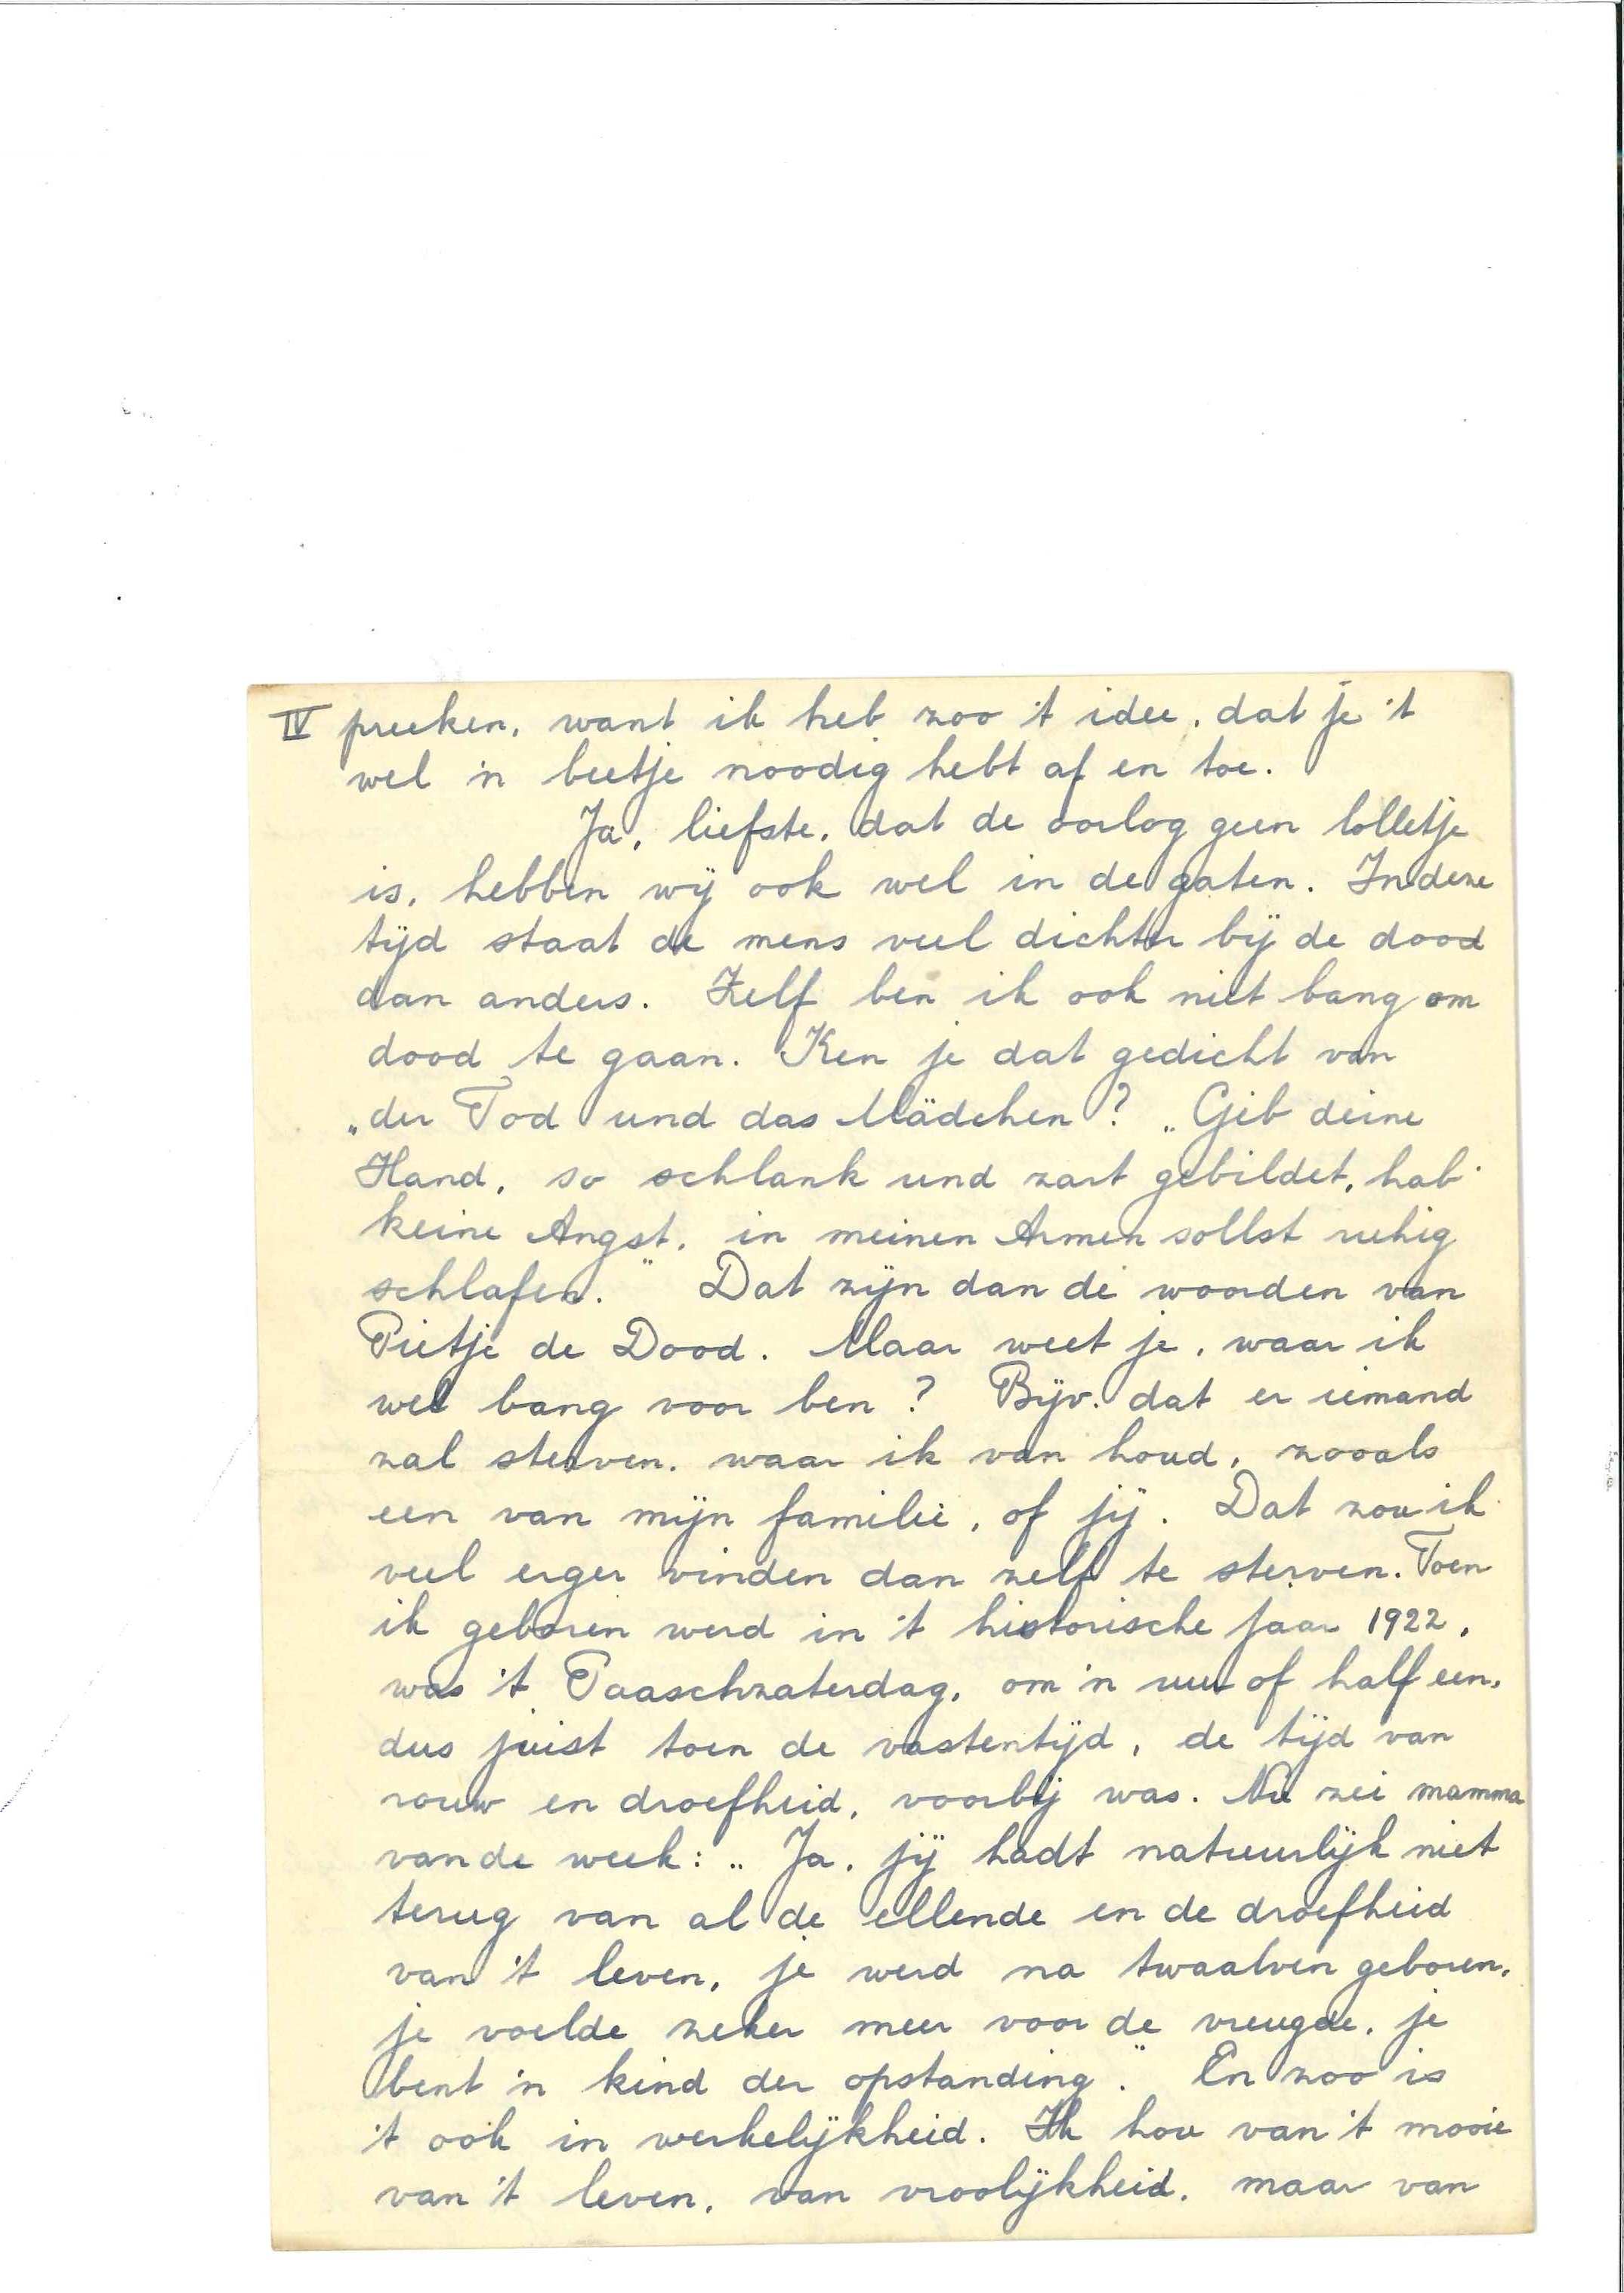 IV preeken, want ik heb zoo 't idee, dat je 't
wel 'n beetje noodig hebt af en toe.
Ja, liefste, dat de oorlog geen lolletje
is, hebben wij ook wel in de gaten. In deze
tijd staat de mens veel dichter bij de dood
dan anders. Zelf ben ik ook niet bang om
dood te gaan. Ken je dat gedicht van
„der Tod und das Mädchen? „Gib deine
Hand, so schlank und zart gebildet, hab'
keine Angst, in meinen Armen sollst ruhig
schlafen." Dat zijn dan de woorden van
Pietje de Dood. Maar weet je, waar ik
wel bang voor ben? Bijv. dat er iemand
zal sterven, waar ik van houd, zooals
een van mijn familie, of jij. Dat zou ik
veel erger vinden dan zelf te sterven. Toen
ik geboren werd in 't historische jaar 1922,
was 't Paaschzaterdag, om 'n uur of half een,
dus juist toen de vastentijd, de tijd van
rouw en droefheid, voorbij was. Nu zei mamma
van de week: „Ja, jij hadt natuurlijk niet
terug van al de ellende en de droefheid
van 't leven, je werd na twaalven geboren,
je voelde zeker meer voor de vreugde, je
bent 'n kind der opstanding." En zoo is
't ook in werkelijkheid. Ik hou van 't mooie
van 't leven, van vroolijkheid, maar van